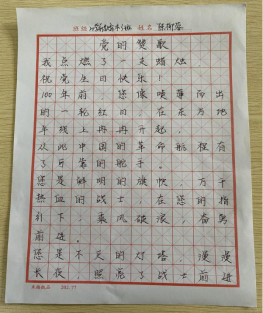 班级 姓名 陈
党的赞歌
我点燃了一支蜡烛
祝党生日快乐！
100年前，您像喷薄而出
的一轮红日，在东方地
平线上冉冉升起，
从此中国的革命航程有
了可靠的舵手。
您是鲜明的旗帜，万千
热血的战士，在您的指
引下，乘风破浪，奋勇
前进。
您是不灭的灯塔，漫漫
长夜，照亮了战士前进